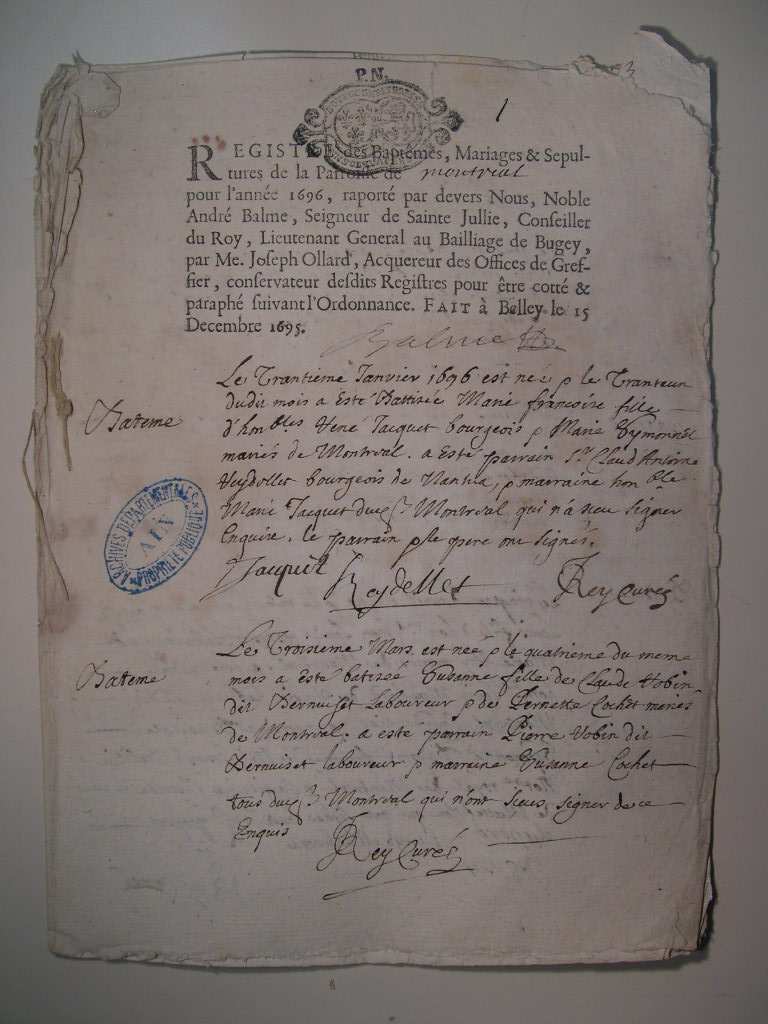 P.N.
1
REGISTRE des Baptêmes, Mariages & Sepul-
tures de la Parroisse de montreal
pour l'année 1696, raporté par devers Nous, Noble
André Balme, Seigneur de Sainte Jullie, Conseiller
du Roy, Lieutenant General au Bailliage de Bugey,
par Me. Joseph Ollard, Acquereur des Offices de Gref-
fier, conservateur desdits Registres pour être cotté &
paraphé suivant l'Ordonnance. FAIT à Belley le 15
Decembre 1695.
Balme
Le Trantieme Janvier 1696 est neé & le Tranteun
Bateme
dudit mois a este Battisée Marie francoise fille
d'honbles René Jacquet bourgeois & Marie
mariés de Montreal. a este parrain Sr Claud Antoine
Reydellet bourgeois de Nantua, & marraine honble
Marie Jacquet dud. Montreal qui n'a sceu signer
Enquise, le parrain & le pere ont signés.
Jacquet Reydellet Rey Curé
ARCHIVES DEPARTEMENTALES
AIN
PROPRIETE PUBLIQUE
Le Troisieme Mars est neé & le quatrieme du meme
Bateme
mois a este batiseé Susanne fille de Claude Robin
dit Bernuiset Laboureur & de Pernette Cochet mariés
de Montreal. a este parrain Pierre Robin dit
Bernuiset laboureur & marraine Susanne Cochet
tous dud. Montreal qui n'ont sceus signer de ce
Enquis
Rey Curé